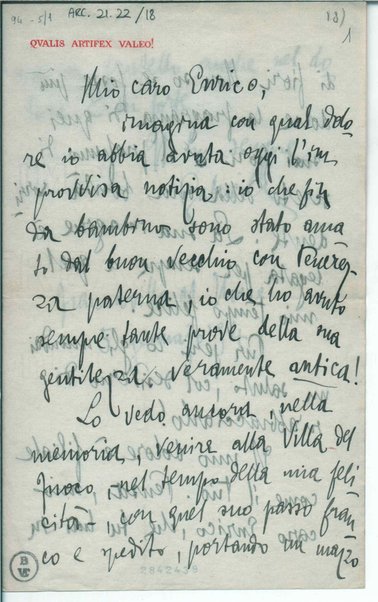 94-5/1 ARC. 21.22/18 18)
1
QVALIS ARTIFEX VALEO!
Mio caro Enrico,
imagina con qual dolo-
re io abbia avuta oggi l'im-
provvisa notizia: io che fin
da bambino sono stato ama-
to dal buon Vecchio con tenerez-
za paterna, io che ho avuto
sempre tante prove della sua
gentilezza veramente antica!
Lo vedo ancora, nella
memoria, venire alla Villa del
Fuoco, nel tempo della mia feli-
cità, con quel suo passo fran-
co e spedito, portando un mazzo
2842439